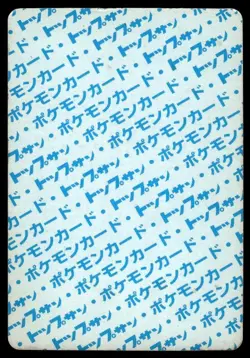 トップサン・ポケモンカード
ポケモンカード・トップサン・
トップサン・ポケモンカード・
ポケモンカード・トップサン・
トップサン・ポケモンカード・
ポケモンカード・トップサン・
トップサン・ポケモンカード・
ポケモンカード・トップサン・
トップサン・ポケモンカード・
ポケモンカード・トップサン・
トップサン・ポケモンカード・
ポケモンカード・トップサン・
トップサン・ポケモン